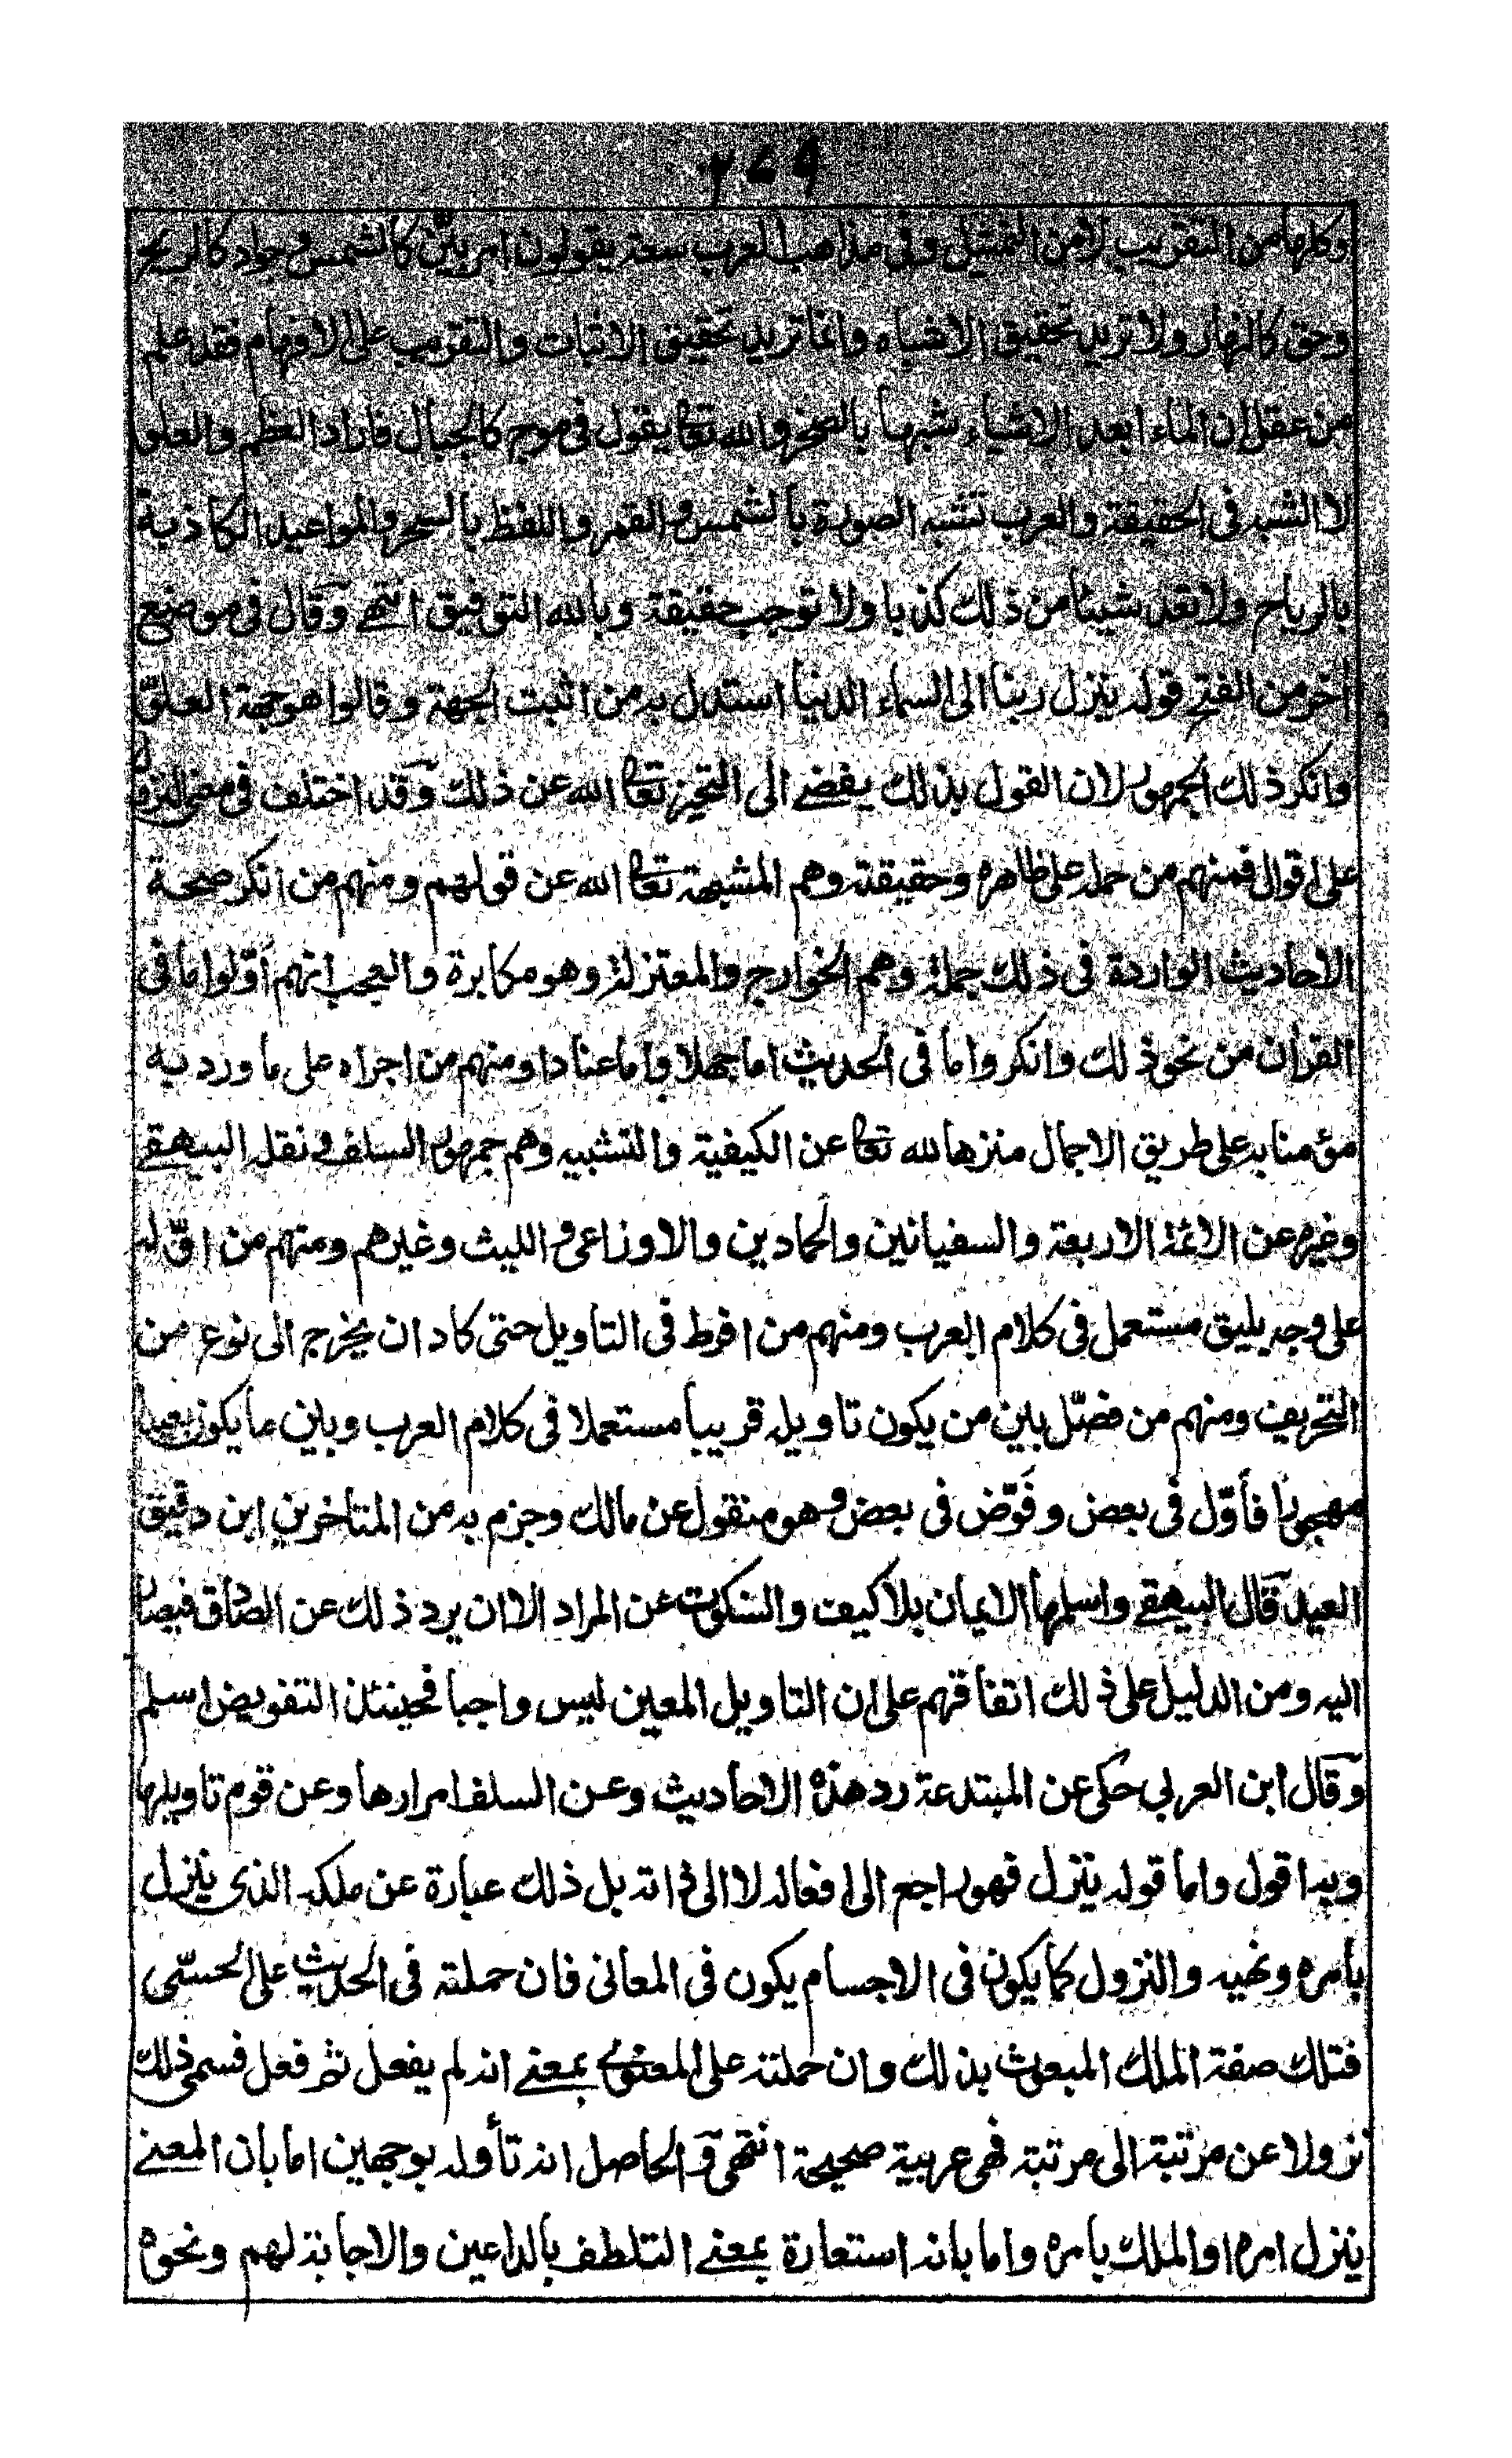 ٢٤٩
وكلها من التقريب لا من التمثيل وفى مذاهب العرب سعة يقولون امر بيّن كالشمس وجواد كالريح
وحق كالنهار ولا تريد تحقيق الاشياء وانما تريد تحقيق الاثبات والتقريب على الافهام فقد علم
من عقل ان الماء ابعد الاشياء شبها بالصخر والله تعا يقول فى موج كالجبال فاراد العظم والعلو
لا الشبه فى الحقيقة والعرب تشبه الصورة بالشمس والقمر واللفظ بالسحر والمواعيد الكاذبة
بالرياح ولا تعد شيئا من ذلك كذبا ولا توجب حقيقة وبالله التوفيق انتهى وقال فى موضع
اخر من الفتح قوله ينزل ربنا الى السماء الدنيا استدل به من اثبت الجهة وقالوا هو جهة العلوّ
وانكر ذلك الجمهور لان القول بذلك يفضى الى التحيز تعا الله عن ذلك وقد اختلف فى معنى النزول
على اقوال فمنهم من حمله على ظاهره وحقيقته وهم المشبهة تعا الله عن قولهم ومنهم من انكر صحة
الاحاديث الواردة فى ذلك جملة وهم الخوارج والمعتزلة وهو مكابرة والعجب انهم أوّلوا ما فى
القرأن من نحو ذلك وانكروا ما فى الحديث اما جهلا واما عنادا ومنهم من اجراه على ما ورد به
مؤمنا به على طريق الاجمال منزها لله تعا عن الكيفية والتشبيه وهم جمهور السلف ونقله البيهقى
وغيره عن الائمة الاربعة والسفيانين والحمادين والاوزاعى والليث وغيرهم ومنهم من اوّله
على وجه يليق مستعمل فى كلام العرب ومنهم من افرط فى التاويل حتى كاد ان يخرج الى نوع من
التحريف ومنهم من فصّل بين من يكون تاويله قريبا مستعملا فى كلام العرب وبين ما يكون بعيدا
مهجورا فأوّل فى بعض وفَوّض فى بعض وهو منقول عن مالك وجزم به من المتاخرين ابن دقيق
العيد قال البيهقى واسلمها الايمان بلا كيف والسكوت عن المراد الا ان يرد ذلك عن الصادق فيصار
اليه ومن الدليل على ذلك اتفاقهم على ان التاويل المعين ليس واجبا فحينئذ التفويض اسلم
وقال ابن العربي حكى عن المبتدعة رد هذه الاحاديث وعن السلف امرارها وعن قوم تاويلها
وبه اقول واما قوله ينزل فهو راجع الى افعاله لا الى ذاته بل ذلك عبارة عن ملكه الذى ينزل
بأمره ونهيه والنزول كما يكون فى الاجسام يكون فى المعانى فان حملته فى الحديث على الحسّى
فتلك صفة الملك المبعوث بذلك وان حملته على المعنوى بمعنى انه لم يفعل ثم فعل فسمى ذلك
نزولا عن مرتبة الى مرتبة فهى عربية صحيحة انتهى والحاصل انه تأوله بوجهين اما بان المعنى
ينزل امره او الملك بامره واما بانه استعارة بمعنى التلطف بالداعين والاجابة لهم ونحوه